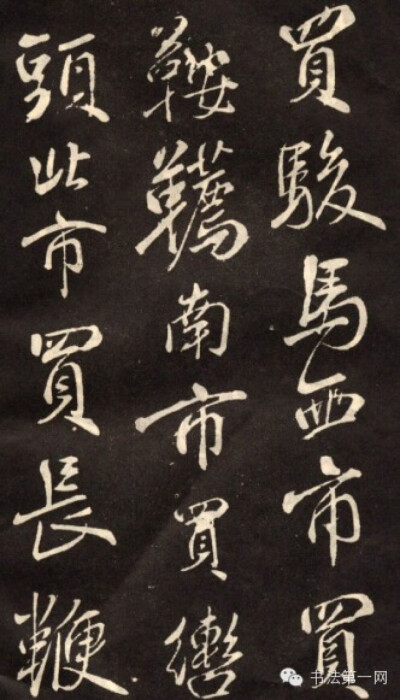 買駿馬西市買
鞍韉南市買轡
頭北市買長鞭
书法第一网